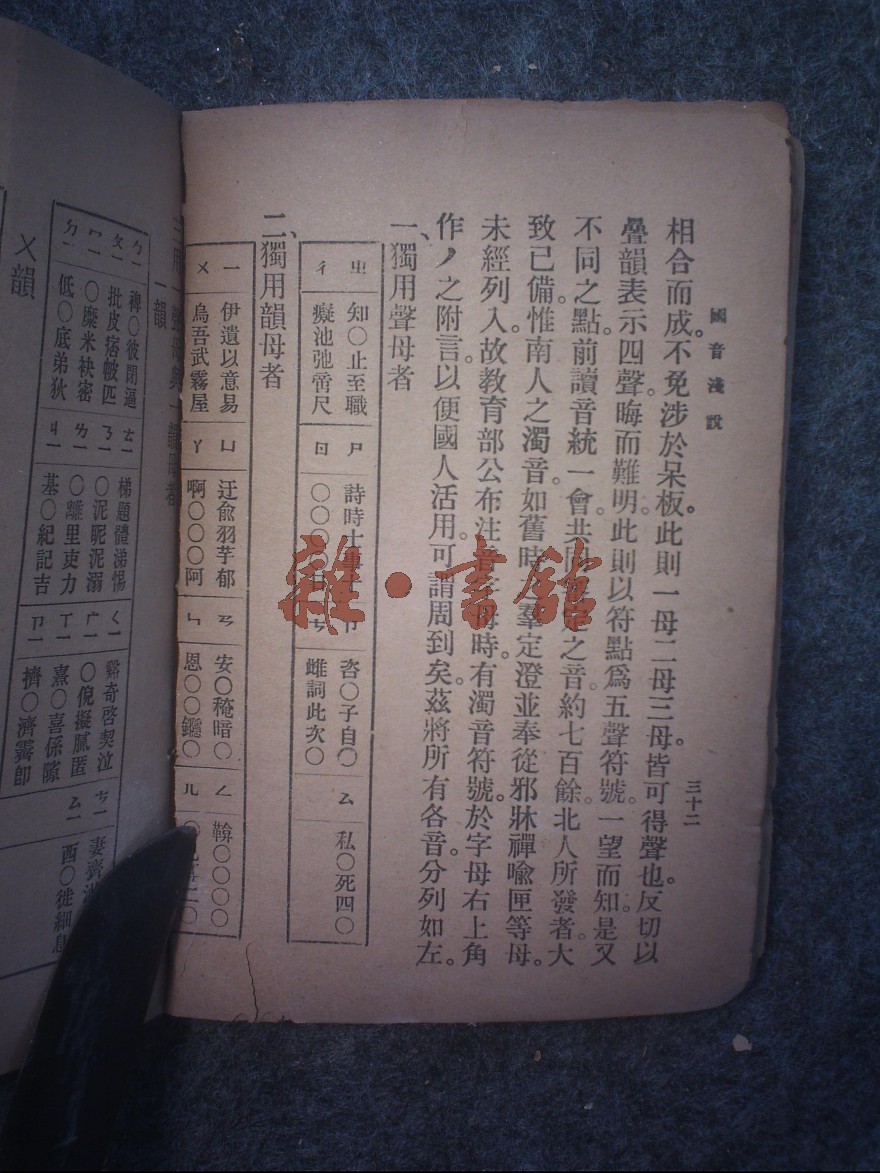 國音淺說
三十二
相合而成。不免涉於呆板。此則一母二母三母。皆可得聲也。反切以
疊韻表示四聲。晦而難明。此則以符點爲五聲符號。一望而知。是又
不同之點。前讀音統一會。共同之音。約七百餘。北人所發者。大
致已備。惟南人之濁音。如舊時之羣定澄並奉從邪牀禪喩匣等母。
未經列入。故教育部公布注音字母時。有濁音符號。於字母右上角
作ノ之附言。以便國人活用。可謂周到矣。茲將所有各音。分列如左。
一、獨用聲母者
ㄓ 知〇止至職 ㄕ 詩時 ㄗ 咨〇子自〇 ㄙ 私〇死四〇
ㄔ 癡池弛啻尺 ㄖ 〇〇〇〇日 ㄘ 雌詞此次〇
二、獨用韻母者
ㄧ 伊遺以意易 ㄩ 迂兪羽芋郁 ㄢ 安〇暗〇 ㄥ 〇〇〇〇
ㄨ 烏吾武霧屋 ㄚ 啊〇〇〇阿 ㄣ 恩〇〇〇 ㄦ 〇
一韻
ㄅㄧ 裨〇彼閉逼 ㄊㄧ 梯題體涕惕 ㄑㄧ 谿奇啓契泣 ㄘㄧ 妻齊
ㄆㄧ 批皮痞帔匹 ㄋㄧ 〇泥眤泥溺 ㄬㄧ 〇倪擬膩匿 ㄙㄧ 西〇徙細息
ㄇㄧ 〇糜米袂密 ㄌㄧ 〇離里吏力 ㄒㄧ 熹〇喜係隙
ㄉㄧ 低〇底弟狄 ㄐㄧ 基〇紀記吉 ㄗㄧ 擠〇濟霽卽
ㄨ韻
雜·書館